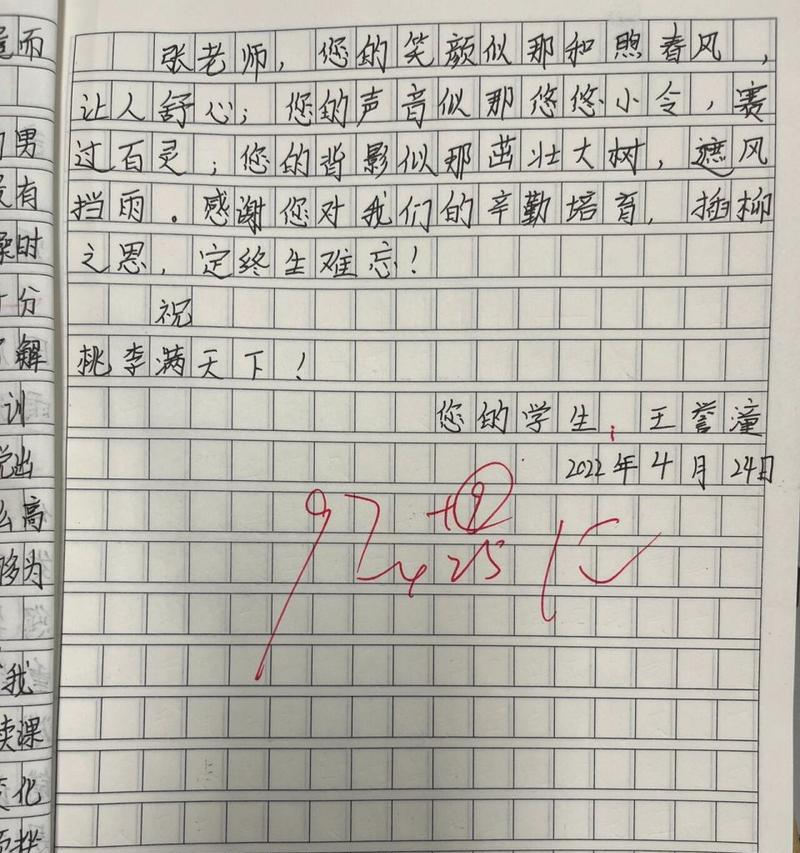 张老师，您的笑颜似那和煦春风，
让人舒心；您的声音似那悠悠小令，赛
过百灵；您的背影似那茁壮大树，遮风
挡雨。感谢您对我们的辛勤培育，插柳
之恩，定终生难忘！
祝
桃李满天下！
您的学生：王誉潼
2022年4月24日
而
男
有
时
分
解
训
出
高
为
我
读课
化